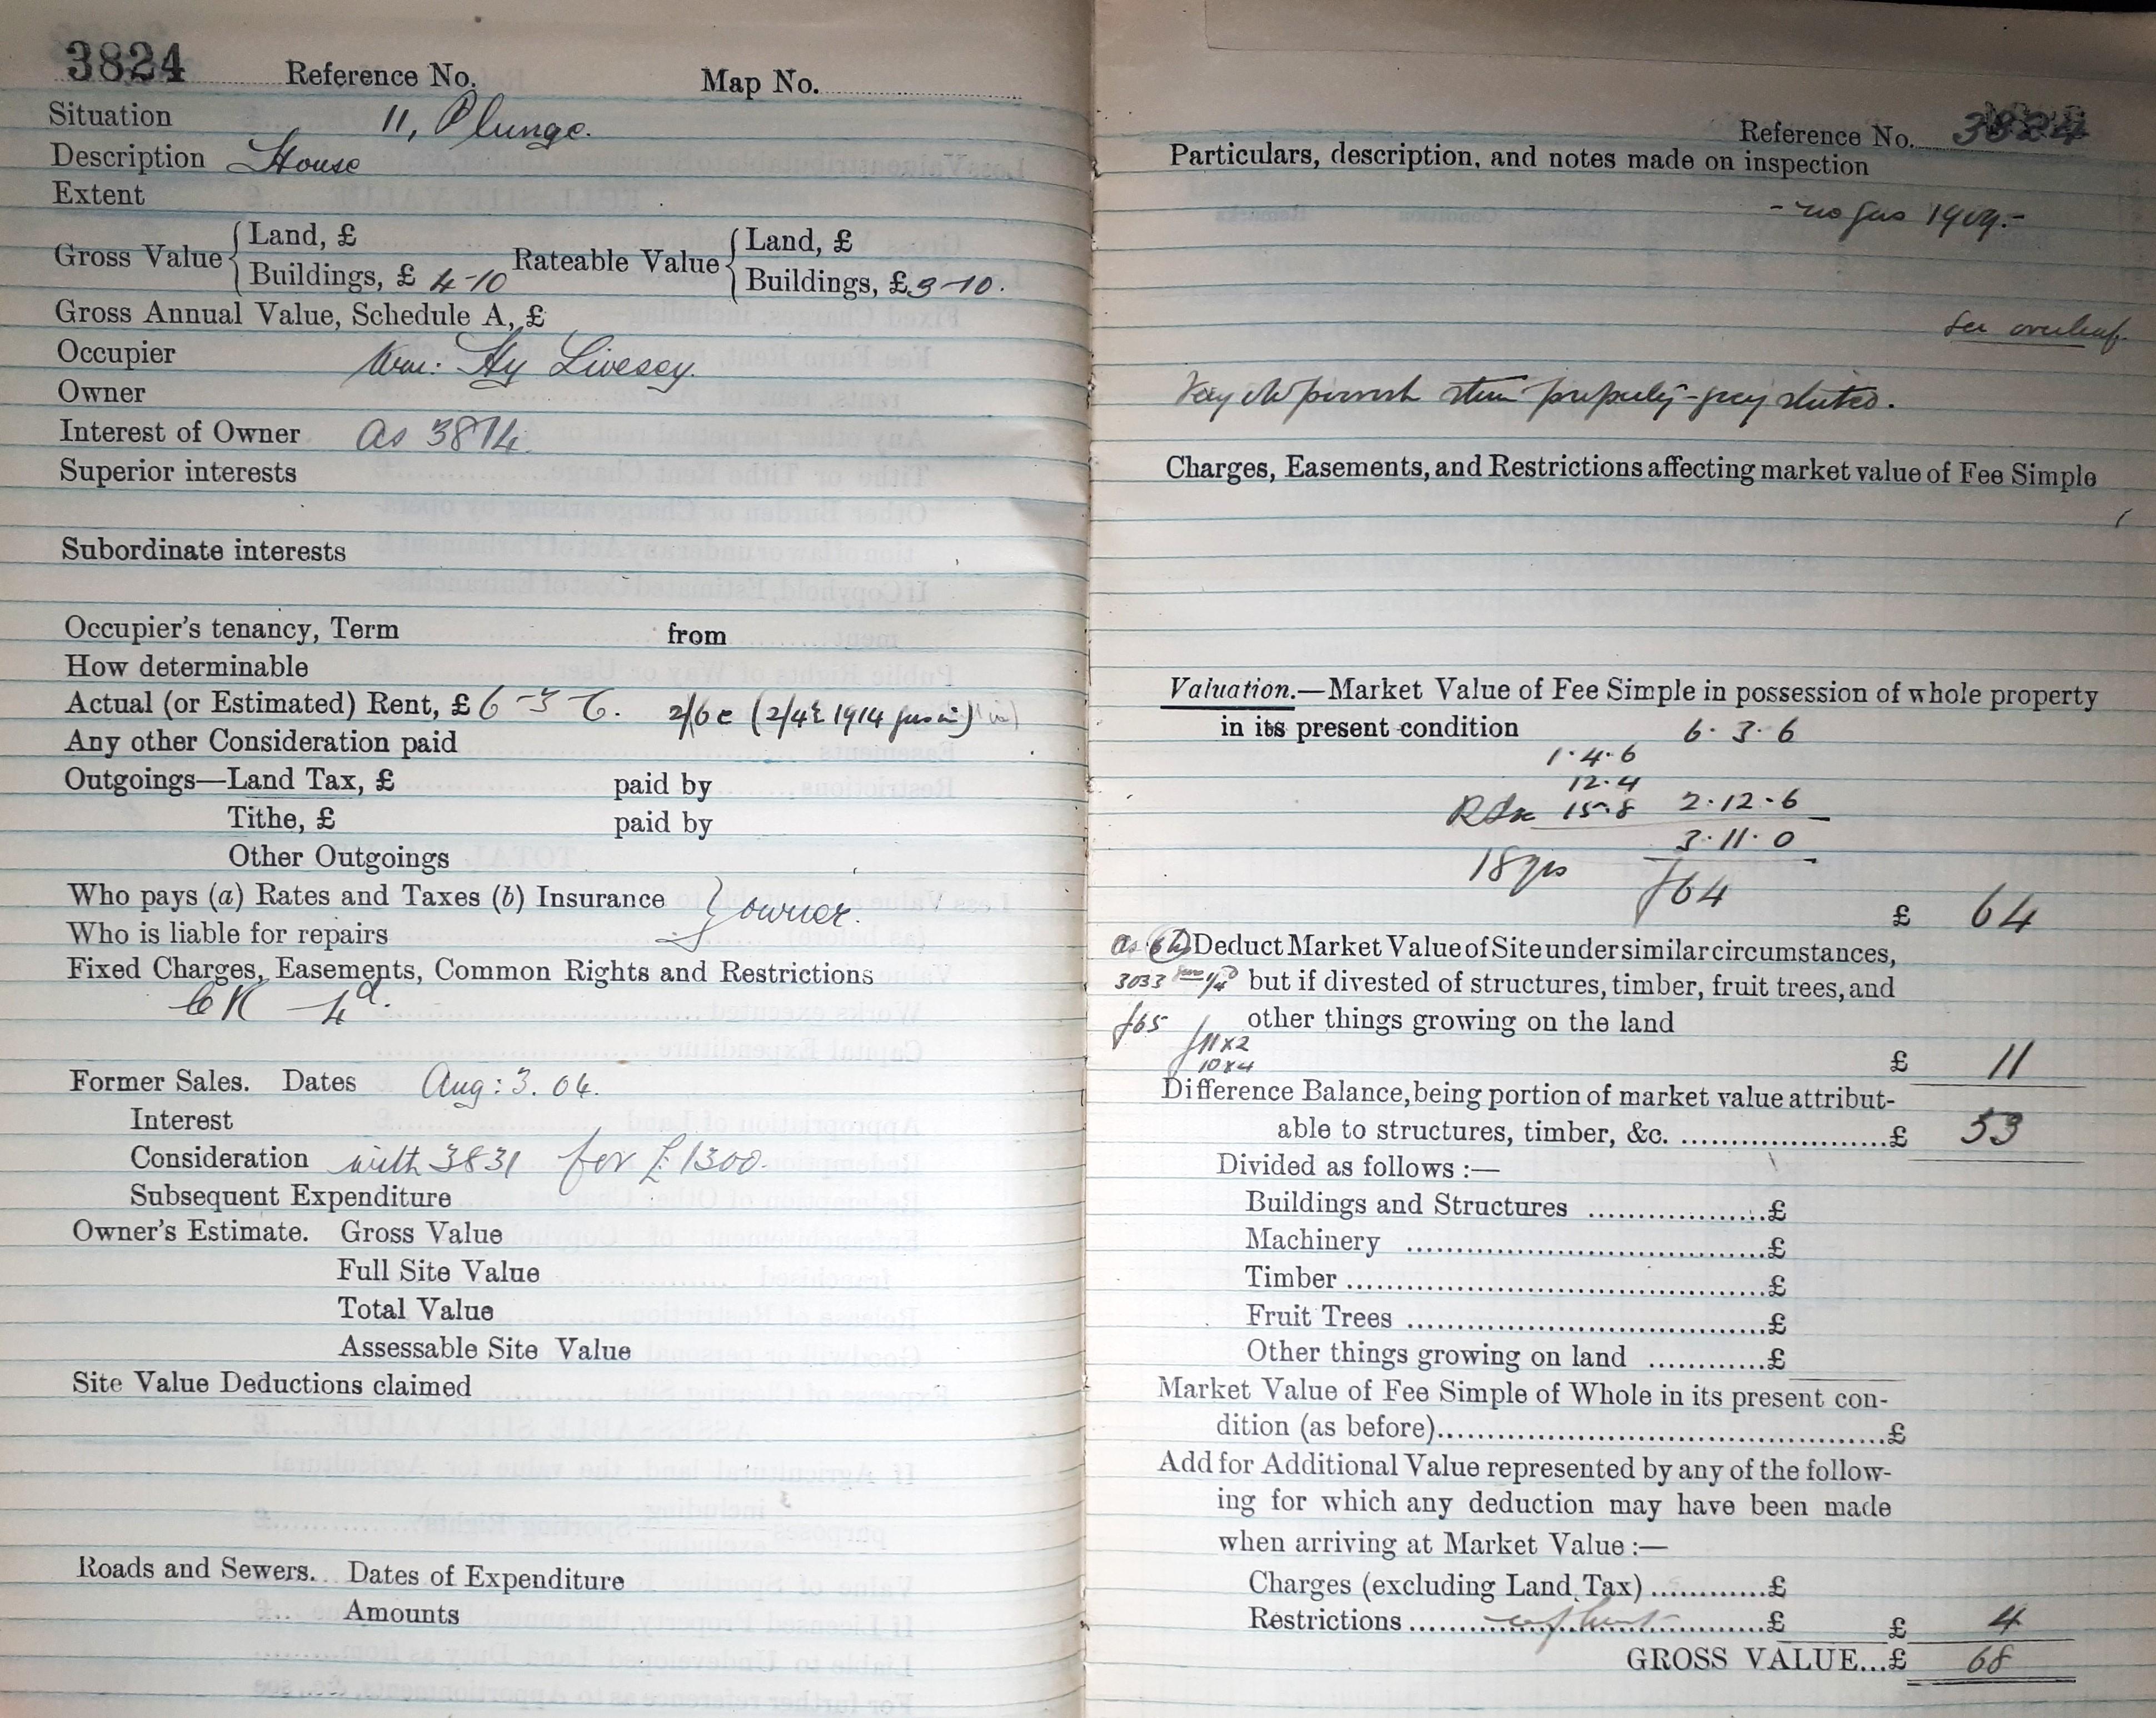 3824 Reference No. Map No.
Situation 11, Plunge.
Description House
Extent
Gross Value { Land, £ Rateable Value { Land, £
Buildings, £ 4-10 Buildings, £ 3-10.
Gross Annual Value, Schedule A, £
Occupier Wm: Hy Livesey.
Owner
Interest of Owner as 3814.
Superior interests
Subordinate interests
Occupier's tenancy, Term from
How determinable
Actual (or Estimated) Rent, £ 6-3-6. 2/6 (2/4 1914 gas in)
Any other Consideration paid
Outgoings—Land Tax, £ paid by
Tithe, £ paid by
Other Outgoings
Who pays (a) Rates and Taxes (b) Insurance } owner.
Who is liable for repairs
Fixed Charges, Easements, Common Rights and Restrictions
CR 4d.
Former Sales. Dates Aug: 3. 04.
Interest
Consideration with 3831 for £1300.
Subsequent Expenditure
Owner's Estimate. Gross Value
Full Site Value
Total Value
Assessable Site Value
Site Value Deductions claimed
Roads and Sewers. Dates of Expenditure
Amounts
Reference No. 3824
Particulars, description, and notes made on inspection
- no gas 1909.-
See overleaf.
Very old stone property - grey slated.
Charges, Easements, and Restrictions affecting market value of Fee Simple
Valuation.—Market Value of Fee Simple in possession of whole property
in its present condition 6.3.6
1.4.6
12.4
15.8 2.12.6
3.11.0
18 yrs £64
£ 64
as Deduct Market Value of Site under similar circumstances,
3033 but if divested of structures, timber, fruit trees, and
£65 other things growing on the land
11x2
10x4 £ 11
Difference Balance, being portion of market value attribut-
able to structures, timber, &c. ....................£ 53
Divided as follows :—
Buildings and Structures ..................£
Machinery ....................................£
Timber ..........................................£
Fruit Trees ....................................£
Other things growing on land ............£
Market Value of Fee Simple of Whole in its present con-
dition (as before)..............................................£
Add for Additional Value represented by any of the follow-
ing for which any deduction may have been made
when arriving at Market Value :—
Charges (excluding Land Tax) ............£
Restrictions ....................................£ £ 4
GROSS VALUE...£ 68